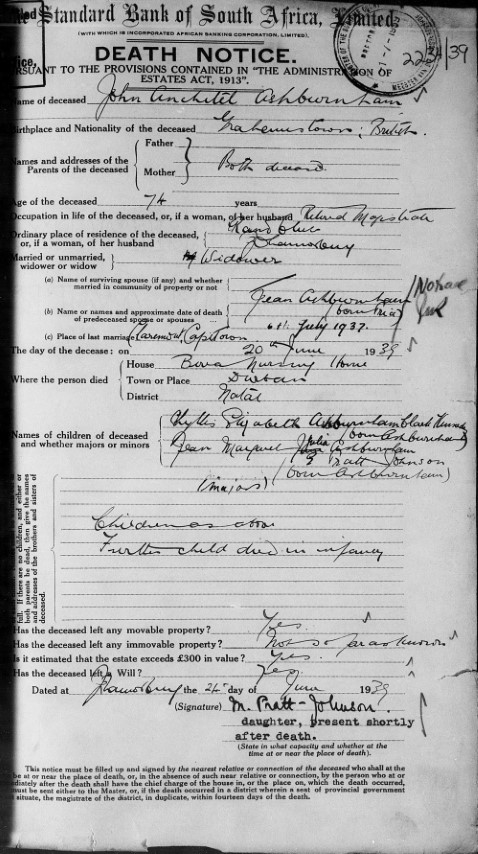 Standard Bank of South Africa, Limited.
(WITH WHICH IS INCORPORATED AFRICAN BANKING CORPORATION, LIMITED).
DEATH NOTICE.
PURSUANT TO THE PROVISIONS CONTAINED IN "THE ADMINISTRATION OF
ESTATES ACT, 1913".
Name of deceased John Anchitel Ashburnham
Birthplace and Nationality of the deceased Grahamstown; British.
Names and addresses of the Parents of the deceased
Father
Mother
Both deceased
Age of the deceased 74 years
Occupation in life of the deceased, or, if a woman, of her husband Retired Magistrate
Ordinary place of residence of the deceased, Rand Club
or, if a woman, of her husband Johannesburg
Married or unmarried, widower or widow Widower
(a) Name of surviving spouse (if any) and whether
married in community of property or not
(b) Name or names and approximate date of death
of predeceased spouse or spouses
Jean Ashburnham
6th July 1937.
(c) Place of last marriage Claremont, Capetown
The day of the decease: on 20th June 1939
Where the person died
House Berea Nursing Home
Town or Place Durban
District Natal
Names of children of deceased
and whether majors or minors
Phyllis Elizabeth Ashburnham
(born Ashburnham)
Jean Margaret Julia Ashburnham
Pratt Johnson
(born Ashburnham)
(majors)
full. If there are no children, and either or
both parents be dead, then give the names
and addresses of the brothers and sisters of
deceased.
Children as above
Further child died in infancy
Has the deceased left any movable property? Yes.
Has the deceased left any immovable property? Not so far as known
Is it estimated that the estate exceeds £300 in value? Yes.
Has the deceased left a Will? Yes.
Dated at Johannesburg the 24th day of June 1939
(Signature) M. Pratt-Johnson.
daughter, present shortly
after death.
(State in what capacity and whether at the
time at or near the place of death).
This notice must be filled up and signed by the nearest relative or connection of the deceased who shall at the
be at or near the place of death, or, in the absence of such near relative or connection, by the person who at or
mediately after the death shall have the chief charge of the house in, or the place on, which the death occurred,
must be sent either to the Master, or, if the death occurred in a district wherein a seat of provincial government
situate, the magistrate of the district, in duplicate, within fourteen days of the death.